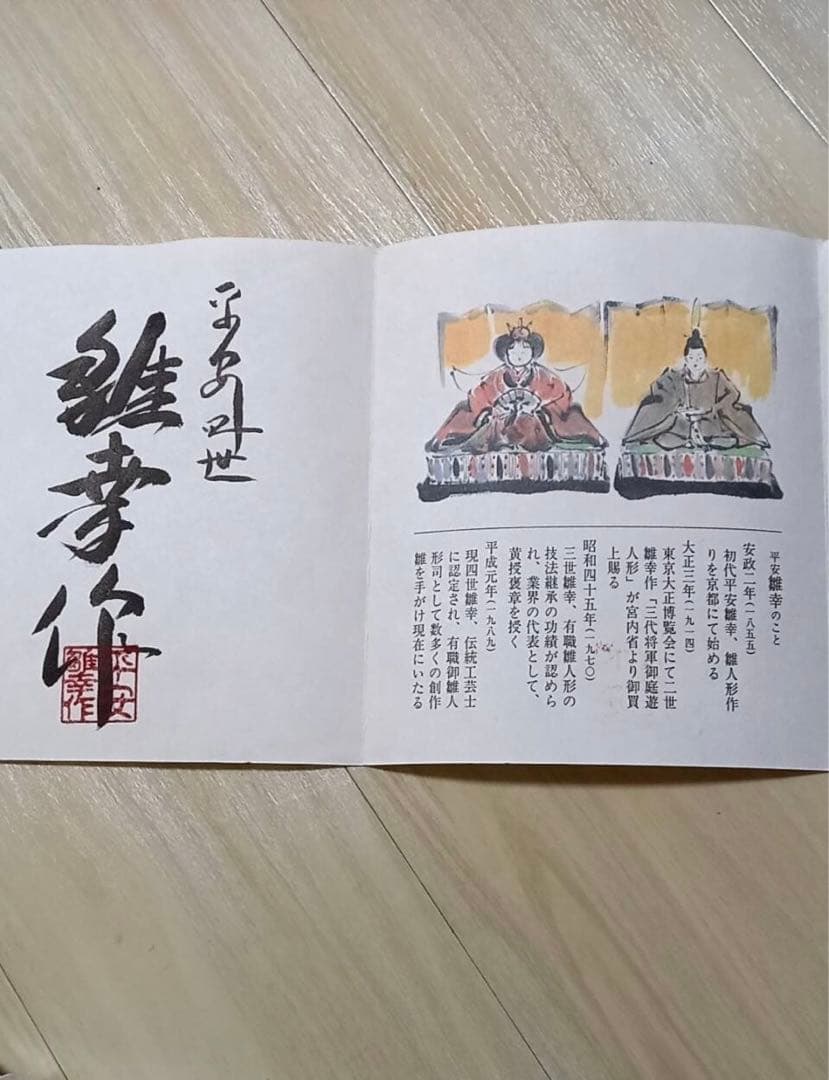 平安雛幸のこと
安政二年(一八五五)
初代平安雛幸、雛人形作
りを京都にて始める
大正三年(一九一四)
東京大正博覧会にて二世
雛幸作「三代将軍御庭遊
人形」が宮内省より御買
上賜る
昭和四十五年(一九七〇)
三世雛幸、有職雛人形の
技法継承の功績が認めら
れ、業界の代表として、
黄授褒章を授く
平成元年(一九八九)
現四世雛幸、伝統工芸士
に認定され、有職御雛人
形司として数多くの創作
雛を手がけ現在にいたる
平安四世
雛幸作
平安
雛幸作